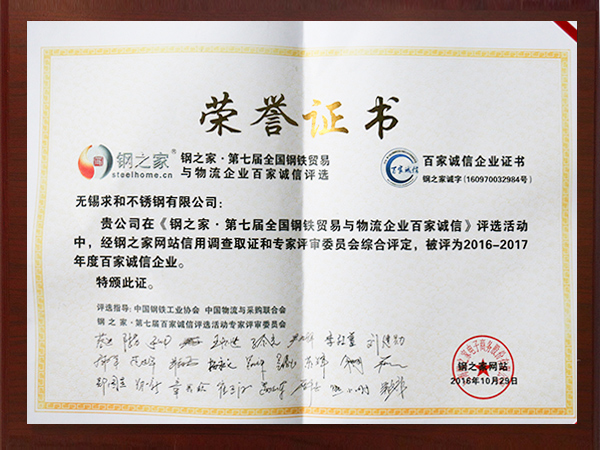 荣誉证书
钢之家®
steelhome.cn
钢之家·第七届全国钢铁贸易
与物流企业百家诚信评选
百家诚信
百家诚信企业证书
钢之家诚字(160970032984号)
无锡求和不锈钢有限公司:
贵公司在《钢之家·第七届全国钢铁贸易与物流企业百家诚信》评选活动
中，经钢之家网站信用调查取证和专家评审委员会综合评定，被评为2016-2017
年度百家诚信企业。
特颁此证。
评选指导:中国钢铁工业协会 中国物流与采购联合会
钢之家·第七届百家诚信评选活动专家评审委员会
钢之家网站
2016年10月29日